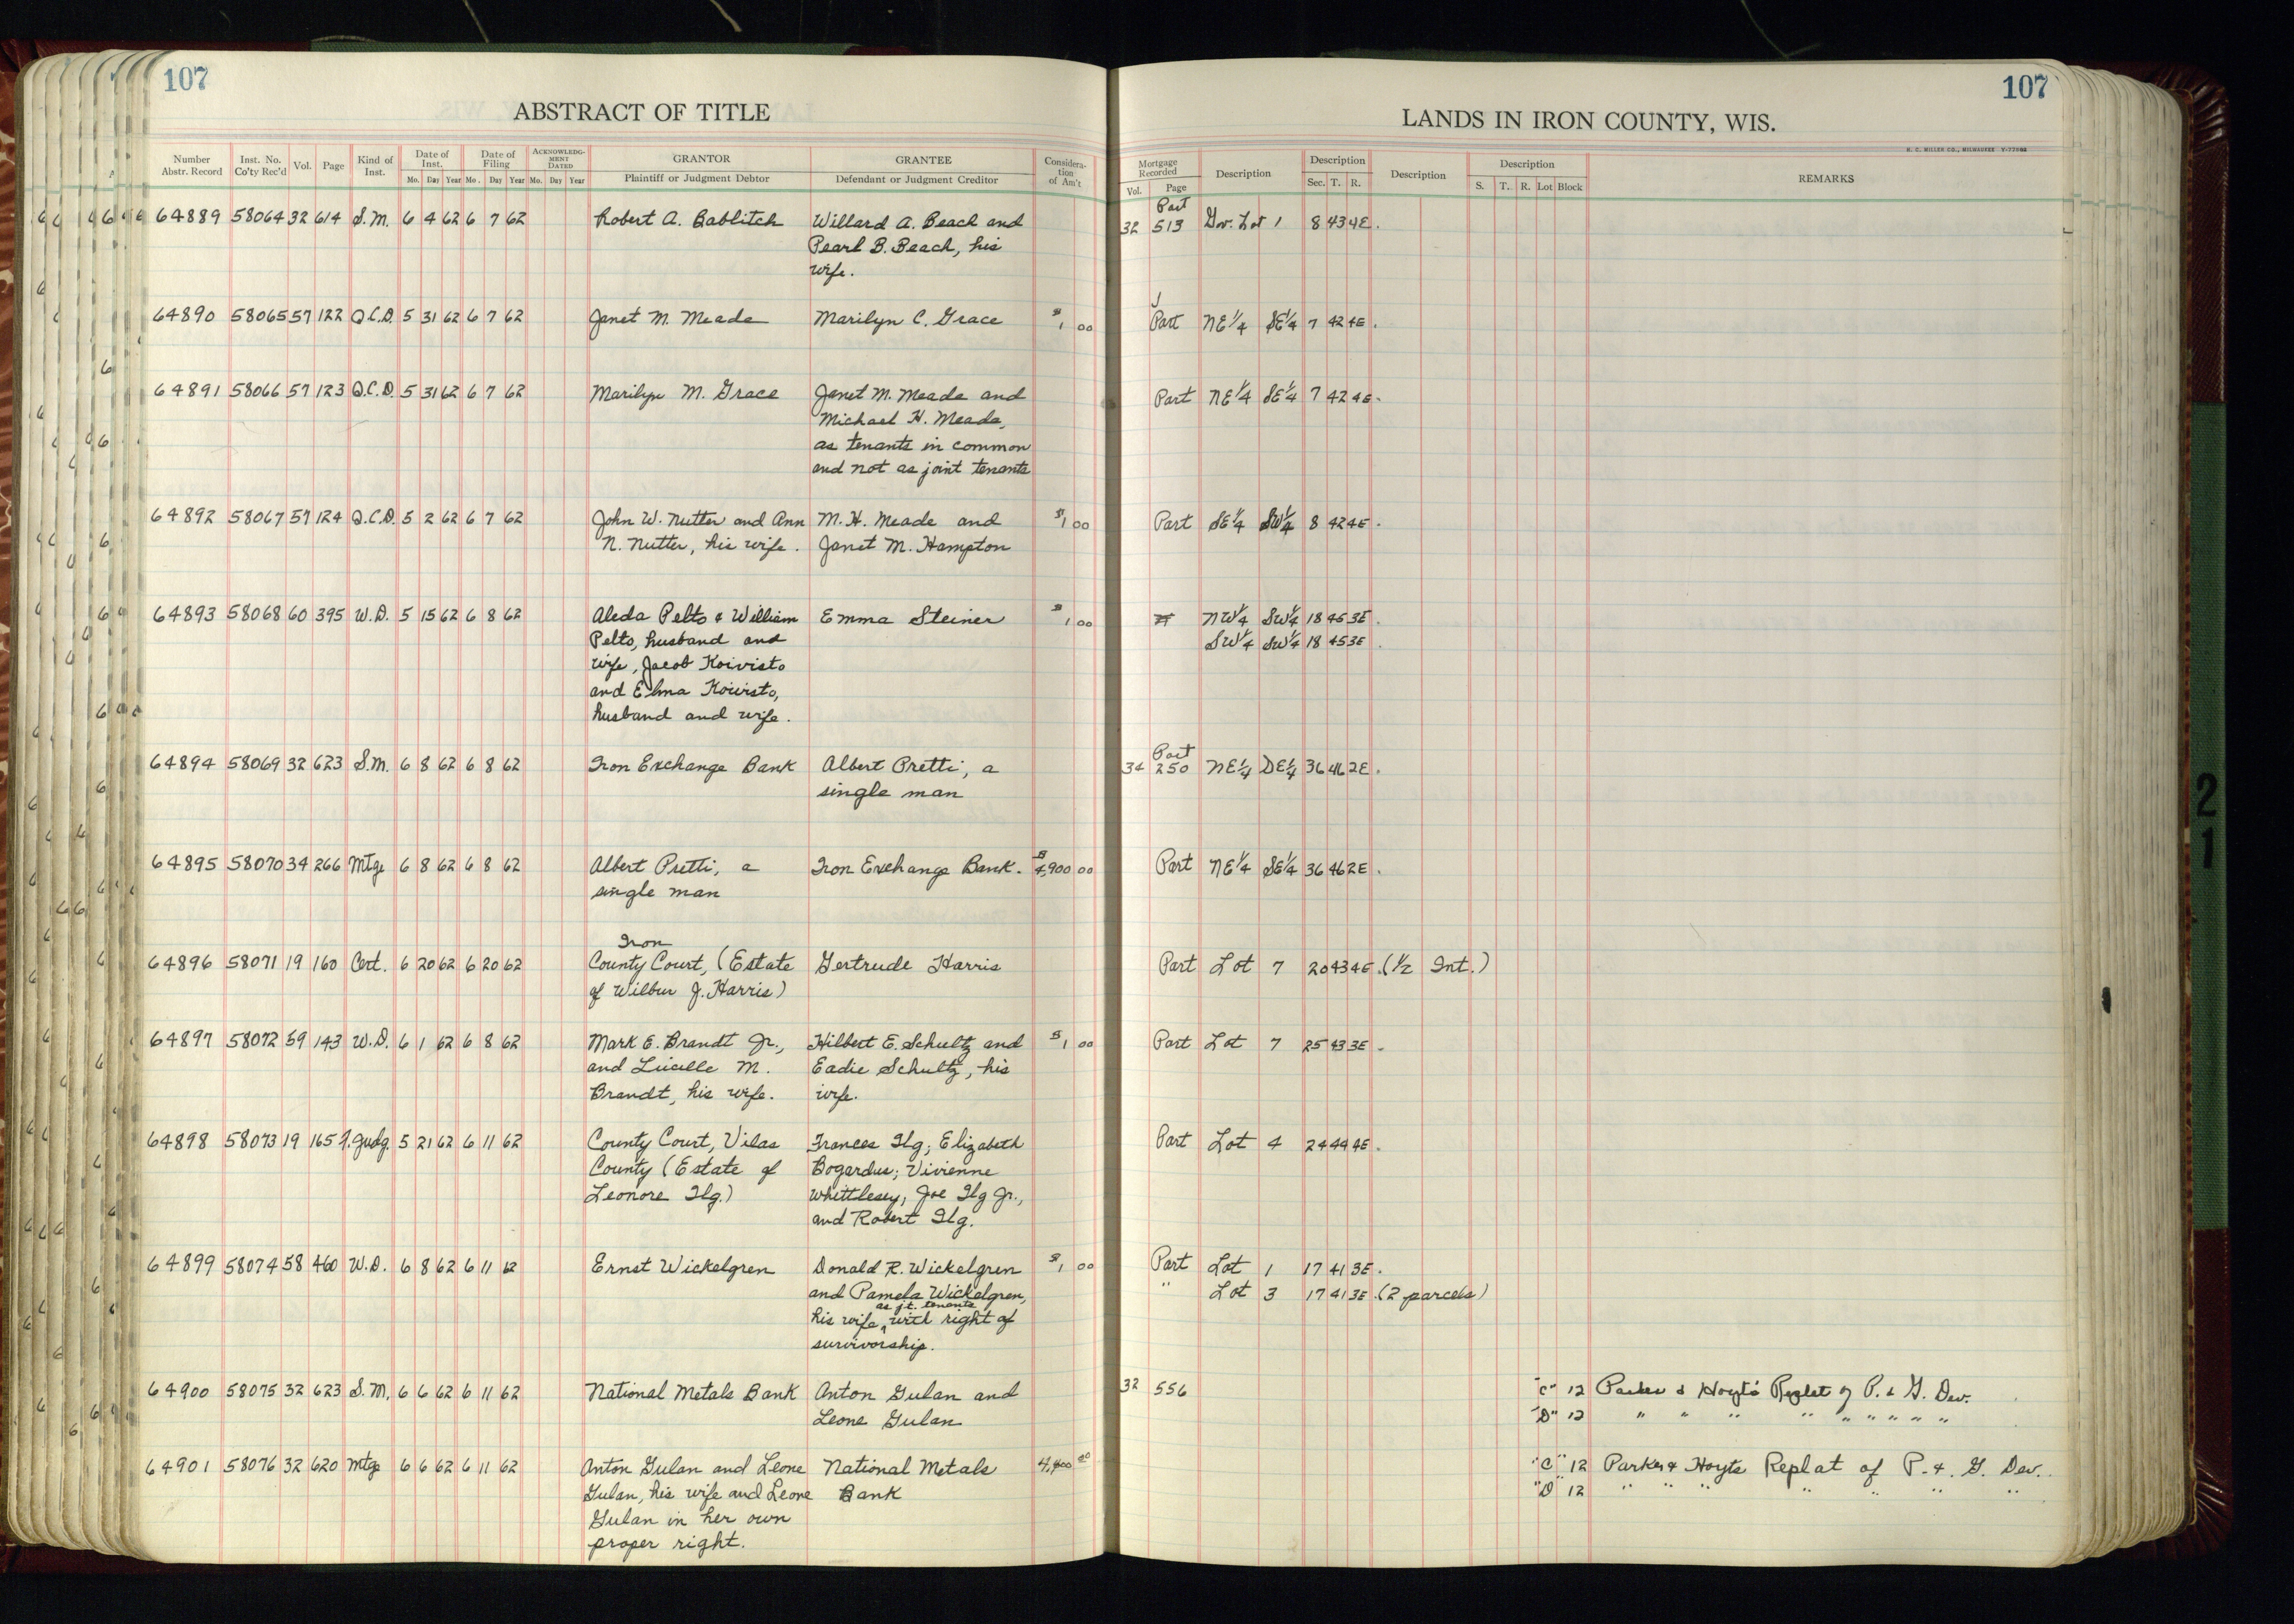 107
ABSTRACT OF TITLE
Number Abstr. Record Inst. No. Co'ty Rec'd Vol. Page Kind of Inst. Date of Inst. Mo. Day Year Date of Filing Mo. Day Year ACKNOWLEDG-MENT DATED Mo. Day Year GRANTOR Plaintiff or Judgment Debtor GRANTEE Defendant or Judgment Creditor Considera-tion of Am't
64889 58064 32 614 S.M. 6 4 62 6 7 62 Robert A. Bablitch Willard A. Beach and
Pearl B. Beach, his
wife.
64890 58065 57 122 Q.C.D. 5 31 62 6 7 62 Janet M. Meade Marilyn C. Grace $1 00
64891 58066 57 123 Q.C.D. 5 31 62 6 7 62 Marilyn M. Grace Janet M. Meade and
Michael H. Meade,
as tenants in common
and not as joint tenants
64892 58067 57 124 Q.C.D. 5 2 62 6 7 62 John W. Nutter and Ann M. H. Meade and $1 00
N. Nutter, his wife. Janet M. Hampton
64893 58068 60 395 W.D. 5 15 62 6 8 62 Aleda Pelto & William Emma Steiner $1 00
Pelto, husband and
wife, Jacob Koivisto
and Elma Koivisto,
husband and wife.
64894 58069 32 623 S.M. 6 8 62 6 8 62 Iron Exchange Bank Albert Pretti, a
single man
64895 58070 34 266 Mtge 6 8 62 6 8 62 Albert Pretti, a Iron Exchange Bank. $4,900 00
single man
Iron
64896 58071 19 160 Cert. 6 20 62 6 20 62 County Court, (Estate Gertrude Harris
of Wilbur J. Harris)
64897 58072 59 143 W.D. 6 1 62 6 8 62 Mark E. Brandt Jr., Hilbert E. Schultz and $1 00
and Lucille M. Eadie Schultz, his
Brandt, his wife. wife.
64898 58073 19 165 f.Judg. 5 21 62 6 11 62 County Court, Vilas Frances Ilg; Elizabeth
County (Estate of Bogardus; Vivienne
Leonore Ilg.) Whittlesey; Joe Ilg Jr.,
and Robert Ilg.
64899 58074 58 460 W.D. 6 8 62 6 11 62 Ernst Wickelgren Donald R. Wickelgren $1 00
and Pamela Wickelgren,
as jt. tenants
his wife, with right of
survivorship.
64900 58075 32 623 S.M. 6 6 62 6 11 62 National Metals Bank Anton Gulan and
Leone Gulan
64901 58076 32 620 Mtge 6 6 62 6 11 62 Anton Gulan and Leone National Metals 4,400 00
Gulan, his wife and Leone Bank
Gulan in her own
proper right.
107
LANDS IN IRON COUNTY, WIS.
H. C. MILLER CO., MILWAUKEE
Mortgage Recorded Vol. Page Description Description Sec. T. R. Description Description S. T. R. Lot Block REMARKS
Part
32 513 Gov. Lot 1 8 43 4E.
Part NE 1/4 SE 1/4 7 42 4E.
Part NE 1/4 SE 1/4 7 42 4E.
Part SE 1/4 SW 1/4 8 42 4E.
NW 1/4 SW 1/4 18 45 3E.
SW 1/4 SW 1/4 18 45 3E.
Part
34 250 NE 1/4 DE 1/4 36 46 2E.
Part NE 1/4 SE 1/4 36 46 2E.
Part Lot 7 20 43 4E. (1/2 Int.)
Part Lot 7 25 43 3E.
Part Lot 4 24 44 4E.
Part Lot 1 17 41 3E.
" Lot 3 17 41 3E. (2 parcels)
32 556 "C" 12 Parker & Hoyt's Replat of P. & G. Dev.
"D" 12 " " " " " " " " "
"C" 12 Parker & Hoyts Replat of P. & G. Dev.
"D" 12 " " " " " " "
21